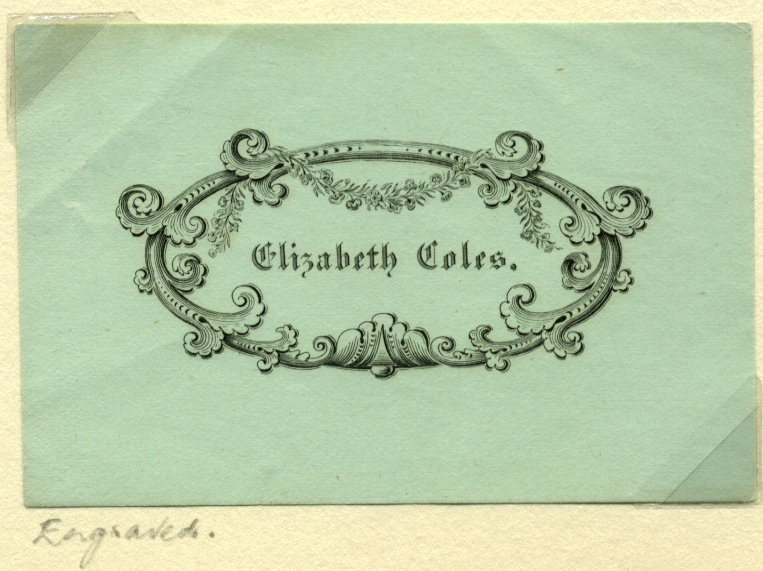 Elizabeth Coles.
Engraved.